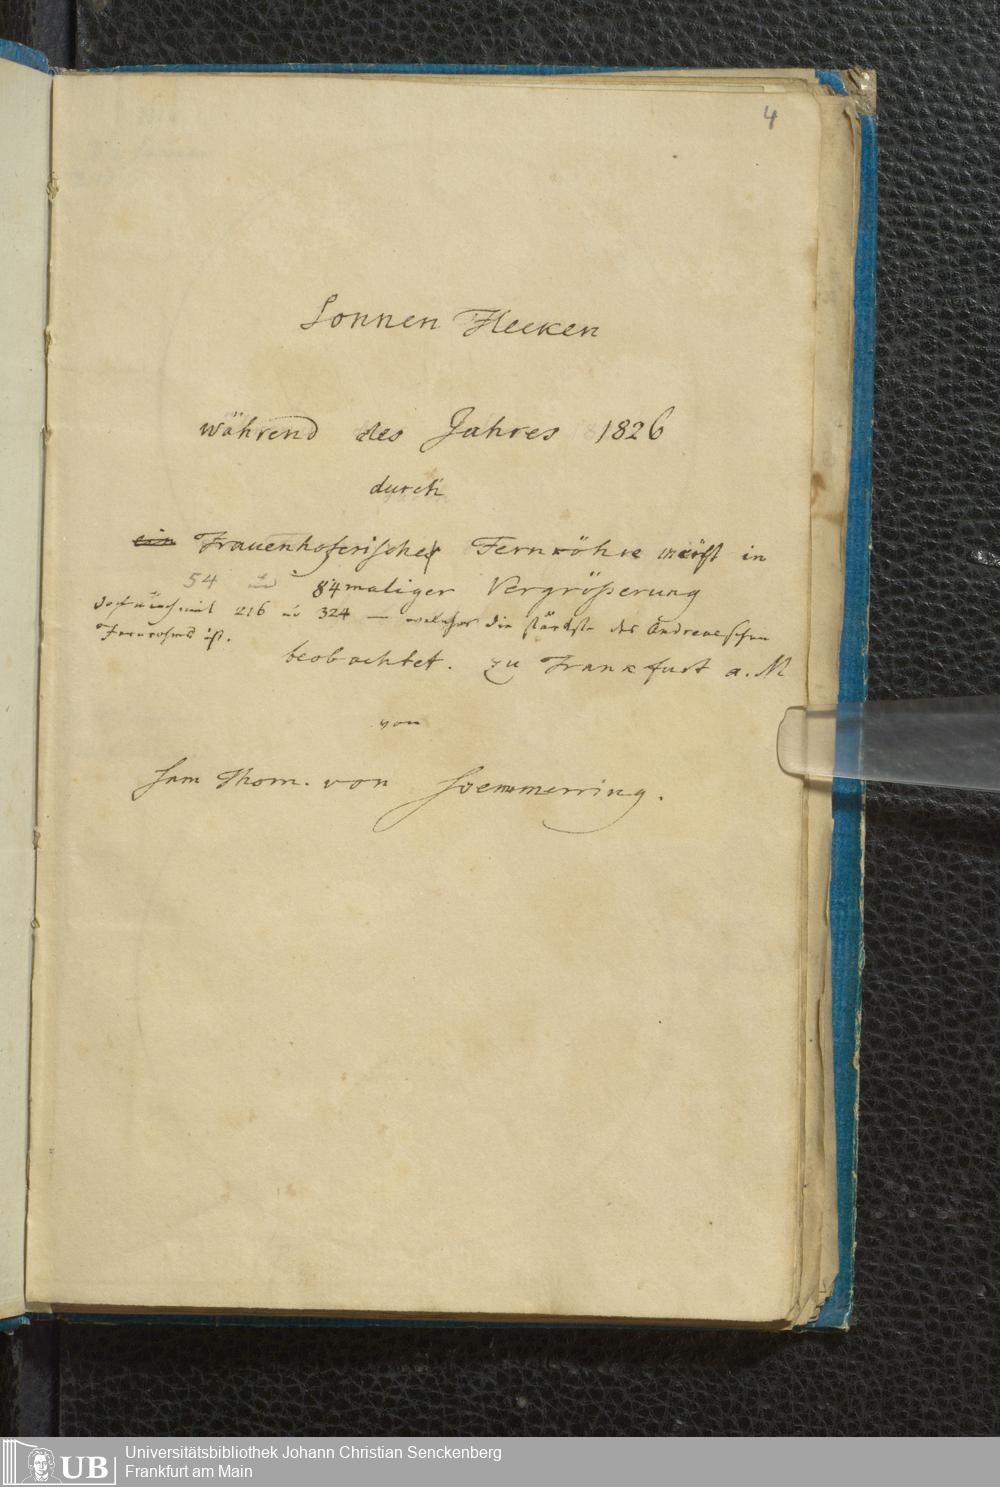 4
Sonnen Flecken
während des Jahres 1826
durch
ein Frauenhoferische Fernröhre meist in
54 u 84maliger Vergrößerung
doch auch mit 216 u 324 — welches die stärkste des Andreaeschen
Fernrohres ist.
beobachtet. zu Frankfurt a. M
von
Sam Thom. von Soemmerring.
UB Universitätsbibliothek Johann Christian Senckenberg
Frankfurt am Main